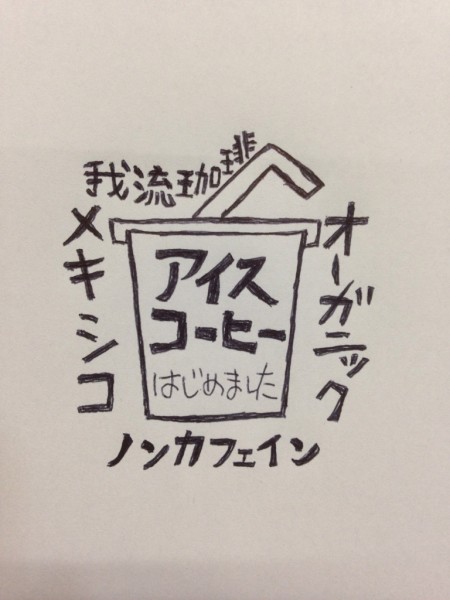 我流珈琲
メキシコ
オーガニック
アイス
コーヒー
はじめました
ノンカフェイン